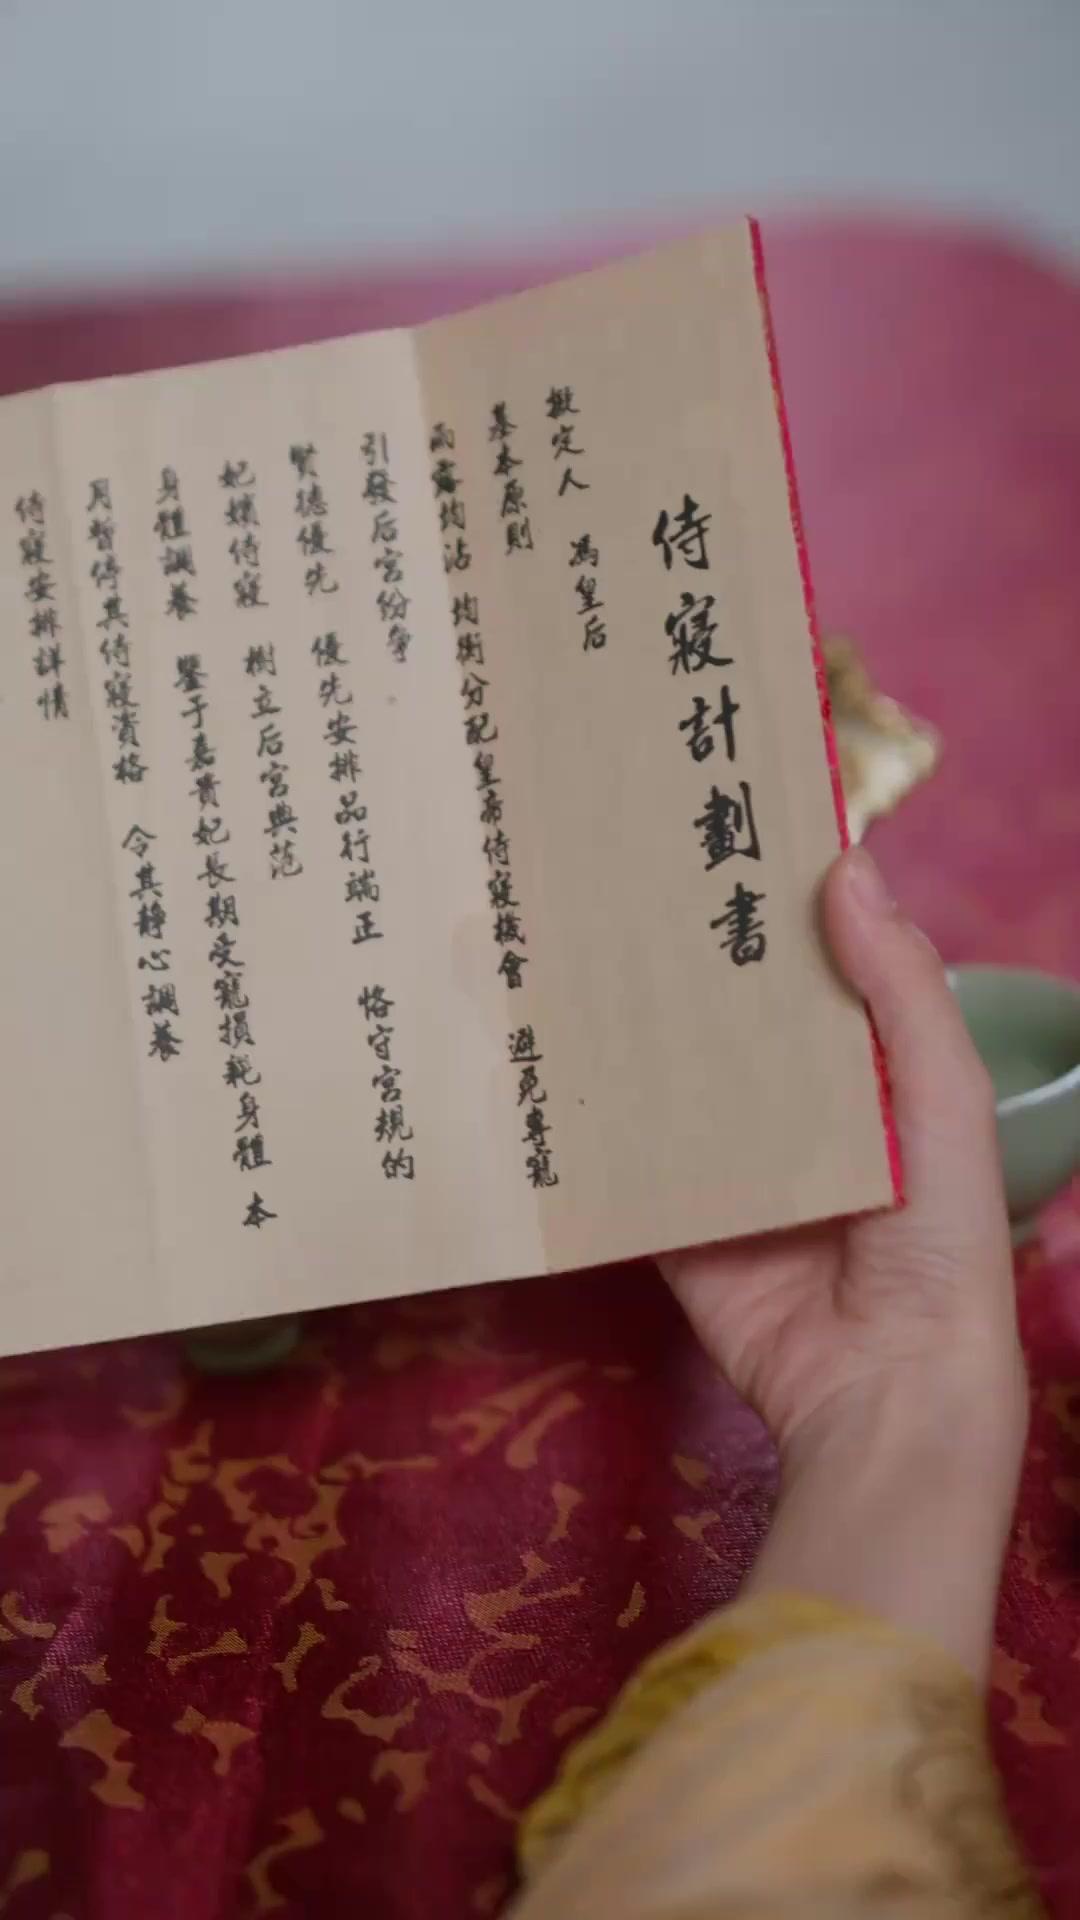 侍寢計劃書
擬定人 馮皇后
基本原則
雨露均沾 均衡分配皇帝侍寢機會 避免專寵
引發后宮紛爭
賢德優先 優先安排品行端正 恪守宮規的
妃嬪侍寢 樹立后宮典范
身體調養 鑒于嘉貴妃長期受寵損耗身體 本
月暫停其侍寢資格 令其靜心調養
侍寢安排詳情